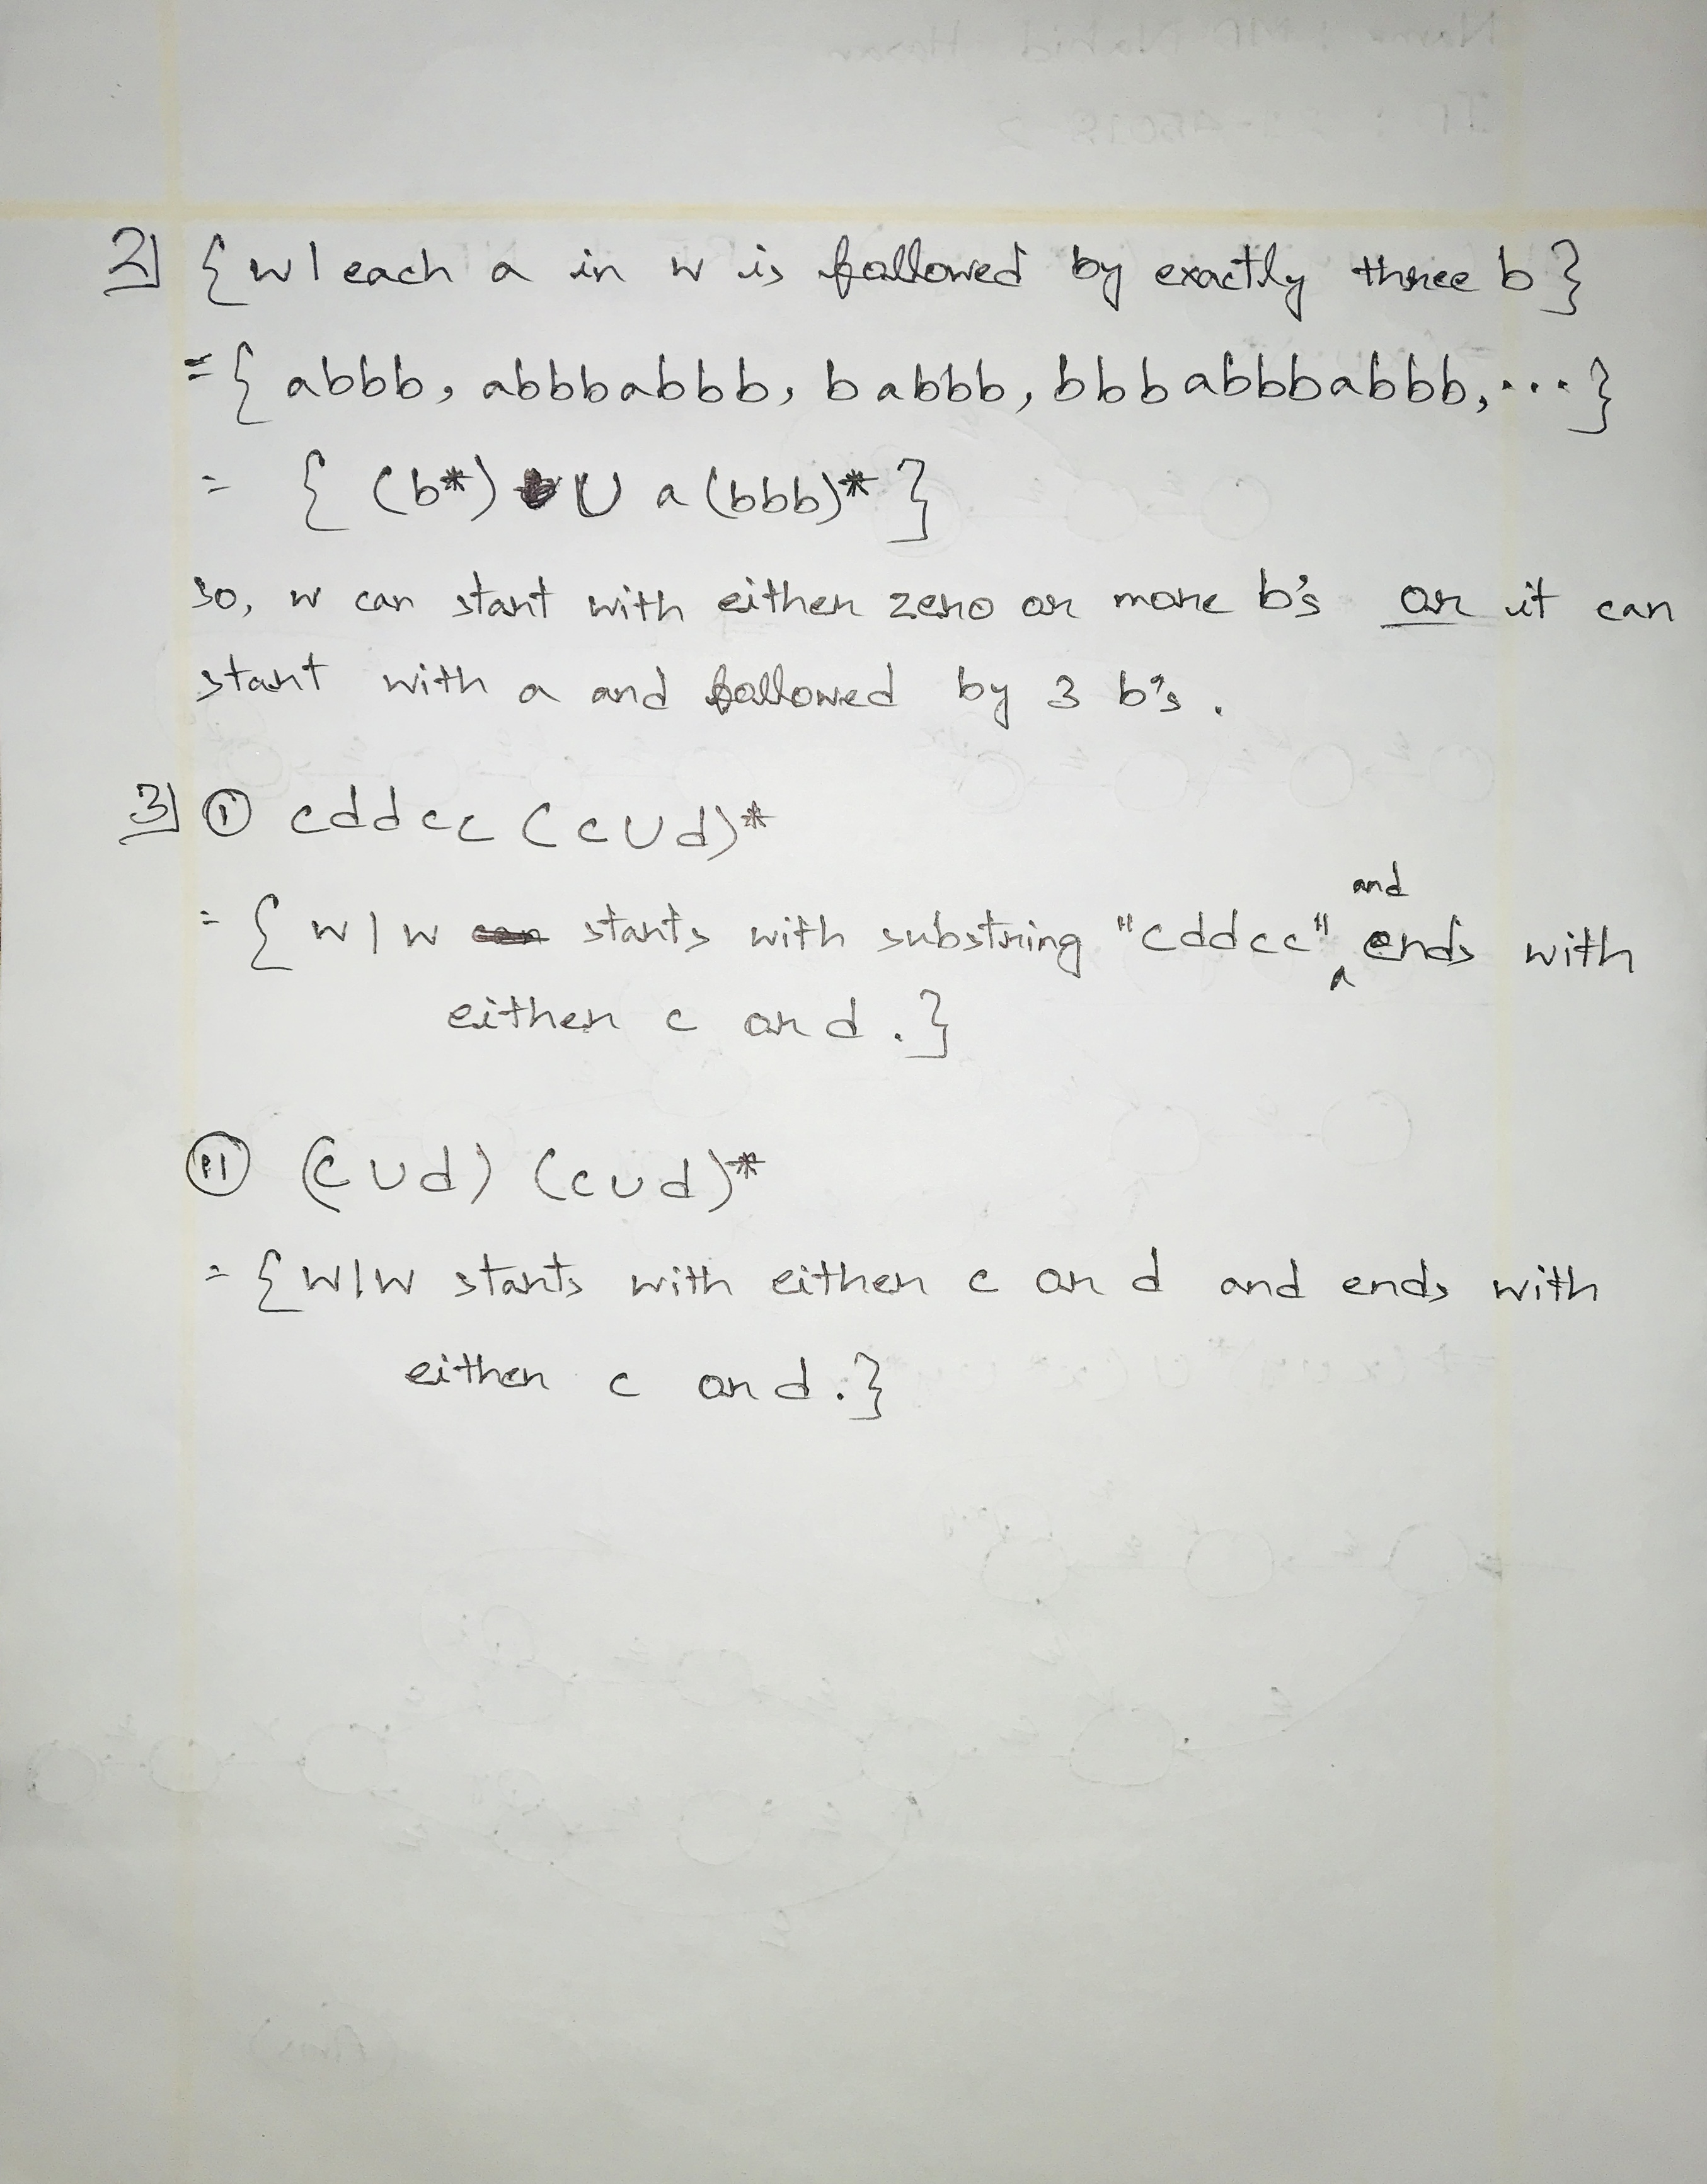 2] { w | each a in w is followed by exactly three b }
= { abbb, abbbabbb, babbb, bbbabbbabbb, ... }
= { (b*) ∪ a (bbb)* }
so, w can start with either zero or more b's or it can
start with a and followed by 3 b's.
3] (i) cddcc (c∪d)*
= { w | w starts with substring "cddcc" and ends with
either c or d. }
(ii) (c∪d) (c∪d)*
= { w | w starts with either c or d and ends with
either c or d. }